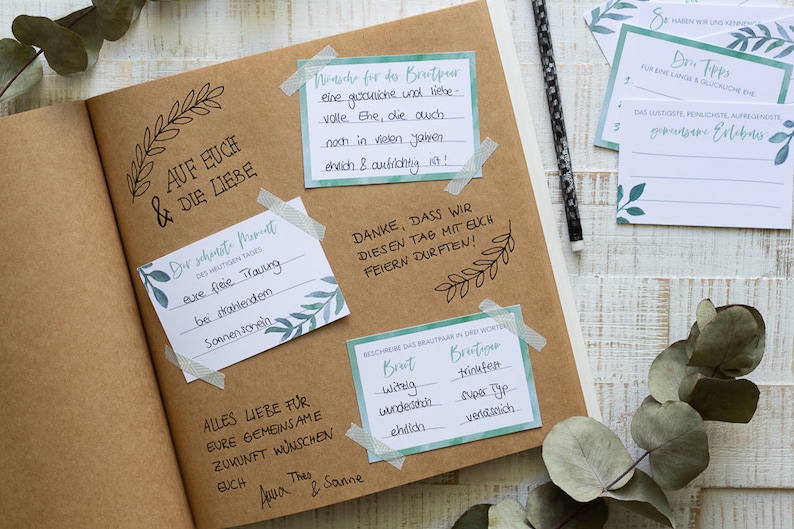 AUF EUCH
& DIE LIEBE
Wünsche für das Brautpaar
eine glückliche und liebe-
volle Ehe, die auch
noch in vielen Jahren
ehrlich & aufrichtig ist!
DANKE, DASS WIR
DIESEN TAG MIT EUCH
FEIERN DURFTEN!
Der schönste Moment
DES HEUTIGEN TAGES
eure freie Trauung
bei strahlendem
Sonnenschein
BESCHREIBE DAS BRAUTPAAR IN DREI WORTEN
Braut Bräutigam
witzig trinkfest
wunderschön super Typ
ehrlich verlässlich
ALLES LIEBE FÜR
EURE GEMEINSAME
ZUKUNFT WÜNSCHEN
EUCH
Anna Theo & Sanne
So HABEN WIR UNS KENNENGE
Drei Tipps
FÜR EINE LANGE & GLÜCKLICHE EHE
1.
3
DAS LUSTIGSTE, PEINLICHSTE, AUFREGENDSTE,
gemeinsame Erlebnis